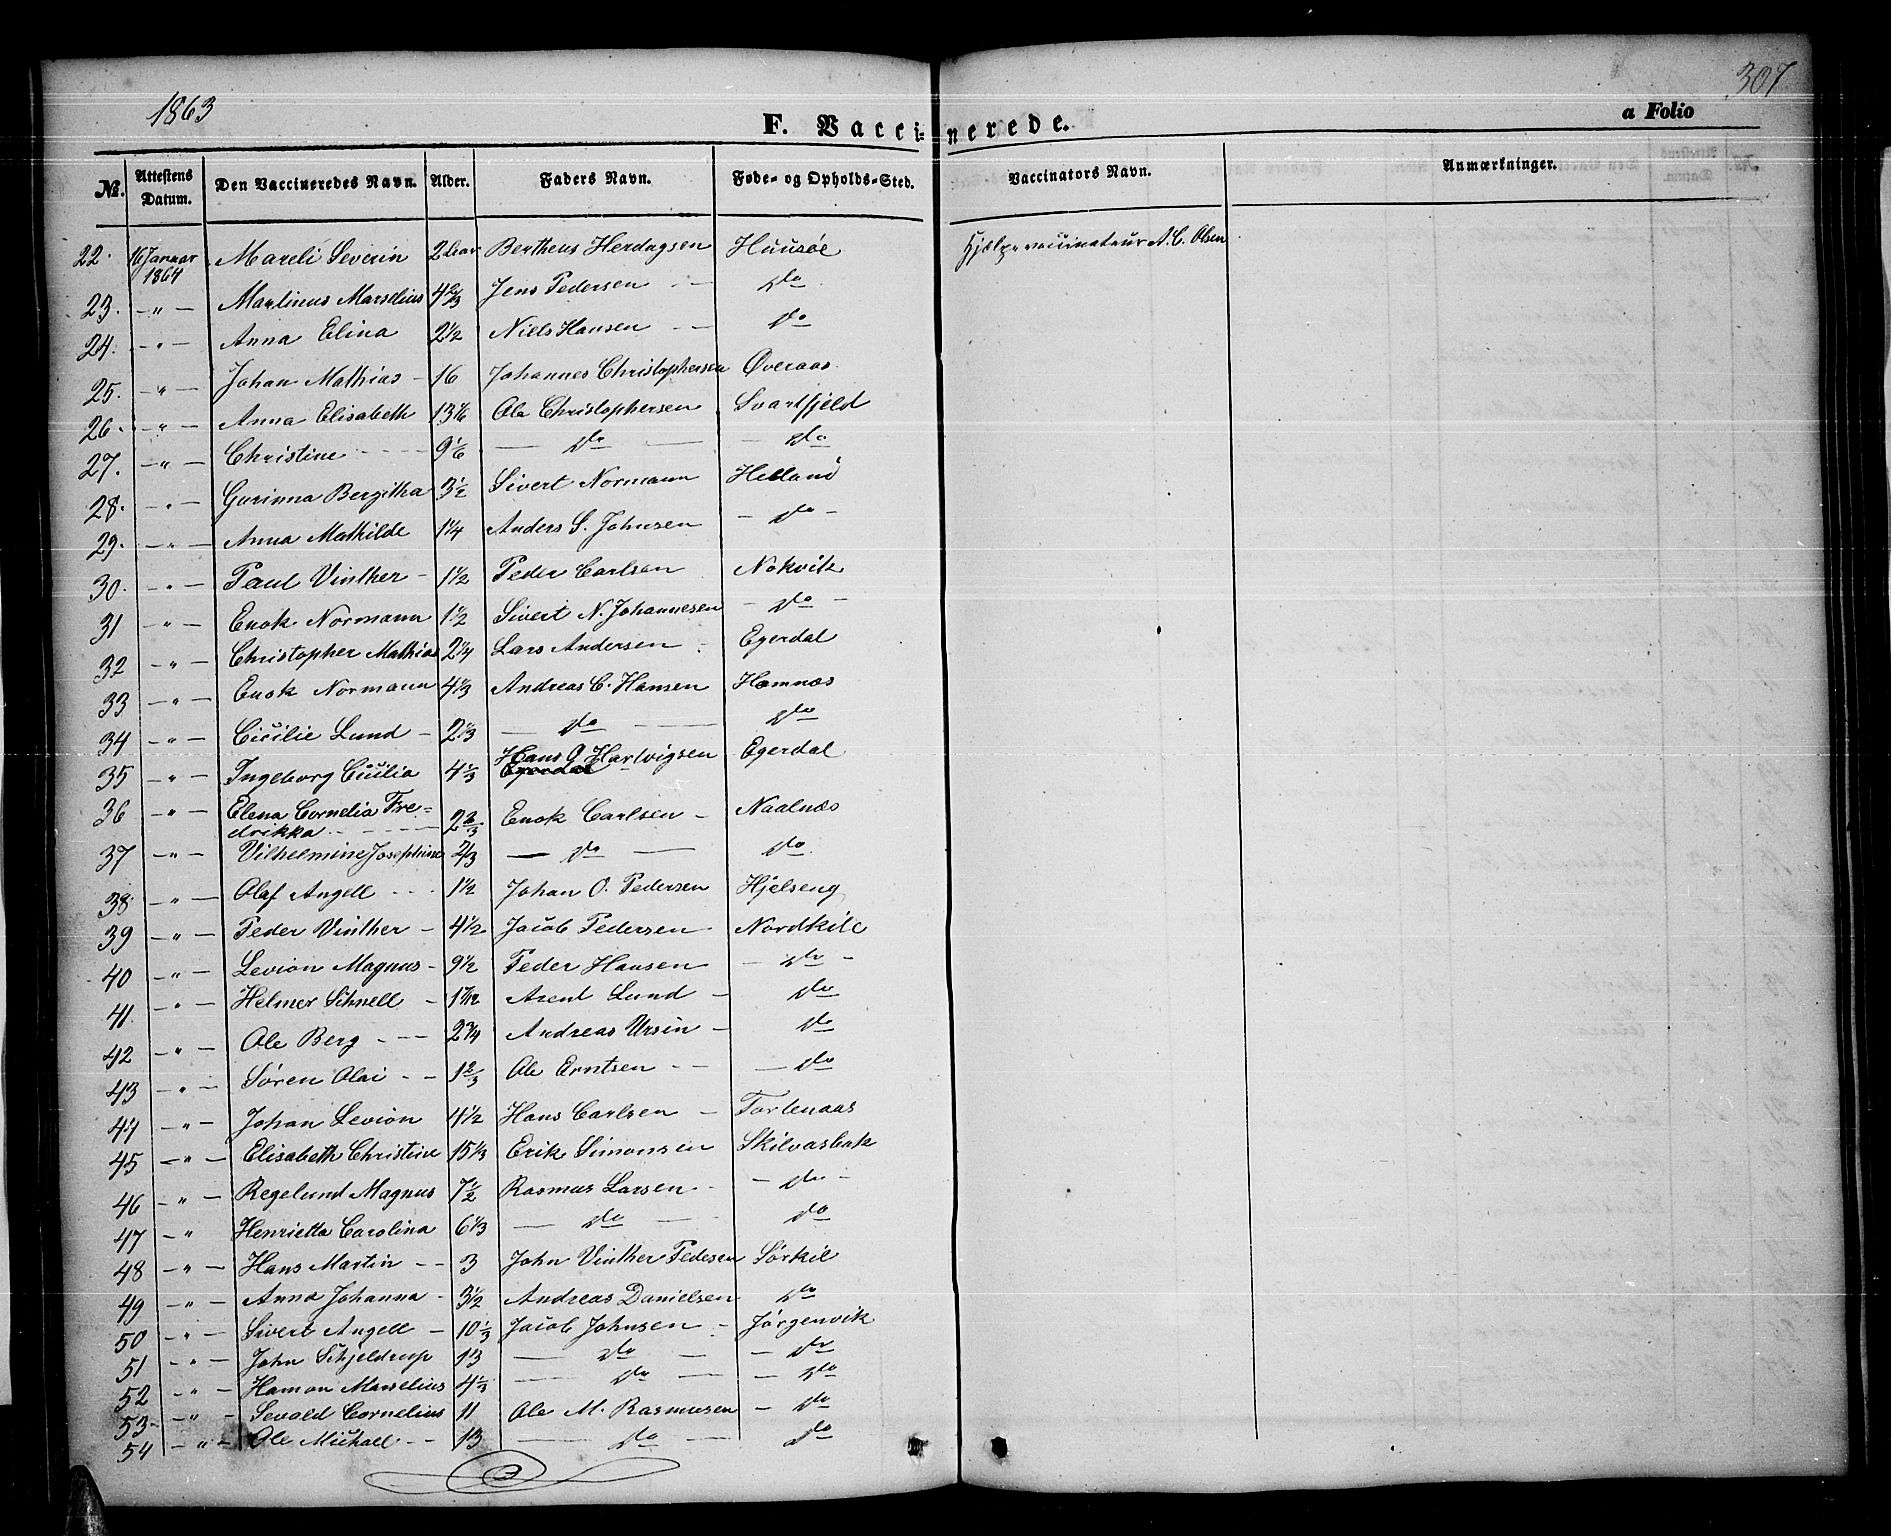 1863
307
F. Vaccinerede.
a Folio
No. Attestens Datum. Den Vaccineredes Navn. Alder. Faders Navn. Føde- og Opholds-Sted. Vaccinators Navn. Anmærkninger.
22. 16 Januar 1864 Mareli Severin 2 Bertheus Herdagsen Huusøe Hjælpevaccinateur A. C. Olsen
23. — " — Martinus Marselius 4 2/3 Jens Pedersen — do
24. — " — Anna Elina 2 1/2 Niels Hansen — do
25. — " — Johan Mathias — 16 Johannes Christophersen Øveraas
26. — " — Anna Elisabeth 13 1/6 Ole Christophersen Svartfjeld
27. — " — Christine 9 1/6 — do — — do
28. — " — Gurinna Bergitha 3 1/2 Sivert Normann Helland
29. — " — Anna Mathilde 1 1/4 Anders S. Johnsen — do —
30. — " — Paul Vinther — 1 1/2 Peder Carlsen Nokvik
31 — " — Enok Normann 1 1/2 Sivert N. Johannesen — do —
32 — " — Christopher Mathias 2 1/4 Lars Andersen — Egerdal
33 — " — Enok Normann 4 1/3 Andreas C. Hansen Hamnæs
34 — " — Cicilie Lund — 2 1/3 — do — do
35 — " — Ingeborg Cicilia 4 1/3 Hans O Hartvigsen Egerdal
36 — " — Elena Cornelia Fre=
drikka 2 2/3 Enok Carlsen — Naalnæs
37 — " — Vilhelmine Josephine 2/3 — do — do
38 — " — Olaf Angell 1 1/2 Johan O. Pedersen Hjelseng
39 — " — Peder Vinther — 4 1/2 Jacob Pedersen Nordkil
40 — " — Levion Magnus — 9 1/2 Peder Hansen — do —
41 — " — Helmer Schnell — 1 7/12 Arent Lund — do
42 — " — Ole Berg — 2 3/4 Andreas Ursin — do
43 — " — Søren Olai — 1 2/3 Ole Erntsen — — do
44 — " — Johan Levion 4 1/2 Hans Carlsen — Tortenaas
45 — " — Elisabeth Christine 15 1/3 Erik Simonsen Skilvasbak
46 — " — Regelund Magnus 7 1/2 Rasmus Larsen — — do —
47 — " Henrietta Carolina 6 1/3 — do — do
48 — " — Hans Martin — 3 John Vinther Pedesen Sørkil
49 — " — Anna Johanna — 3 1/2 Andreas Danielsen do
50 — " — Sivert Angell — 10 1/3 Jacob Johnsen — Jørgenvik
51 — " — John Schjeldrup 13 — do — — do
52 — " — Hamon Marselius 4 1/3 — do — — do
53 — " — Sevald Cornelius 11 Ole M. Rasmusen — do
54 — " — Ole Michael — 13 — do — do